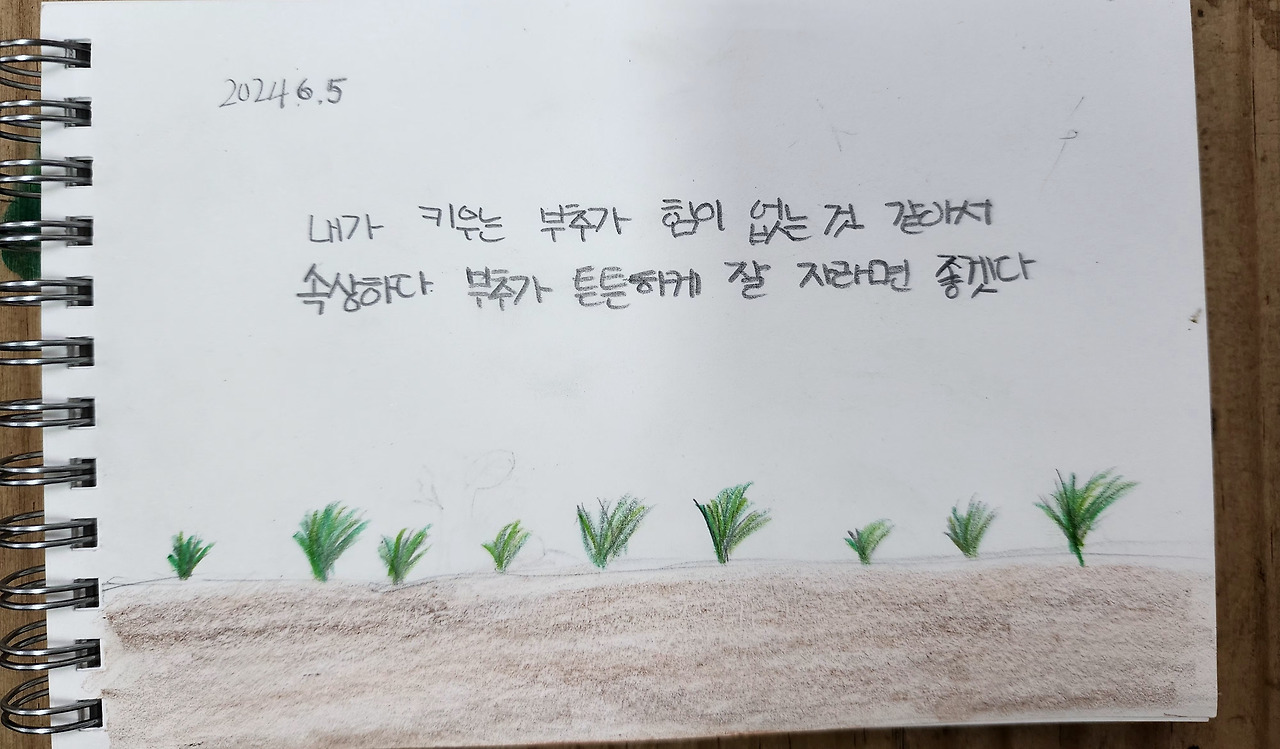 2024.6.5
내가 키우는 부추가 힘이 없는 것 같아서
속상하다 부추가 튼튼하게 잘 자라면 좋겟다